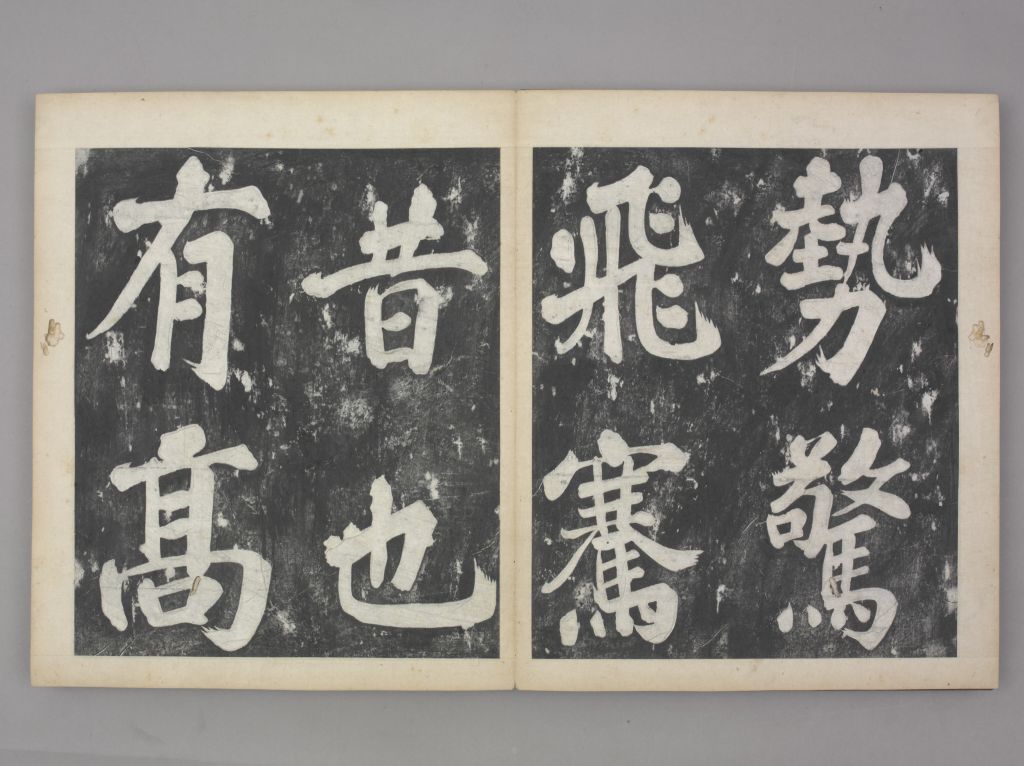 勢驚
飛騫
昔也
有髙